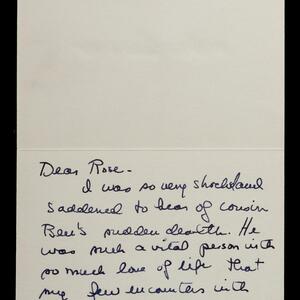 Dear Rose-
I was so very shocked and
saddened to hear of cousin
Ben's sudden death. He
was such a vital person with
so much love of life that
my few encounters with